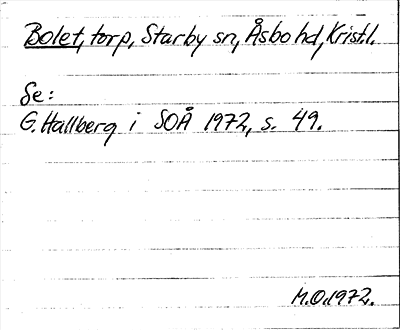 Bolet, torp, Starby sn, Åsbo hd, Krist.l.
Se:
G. Hallberg i SOÅ 1972, s. 49.
M.O.1972.